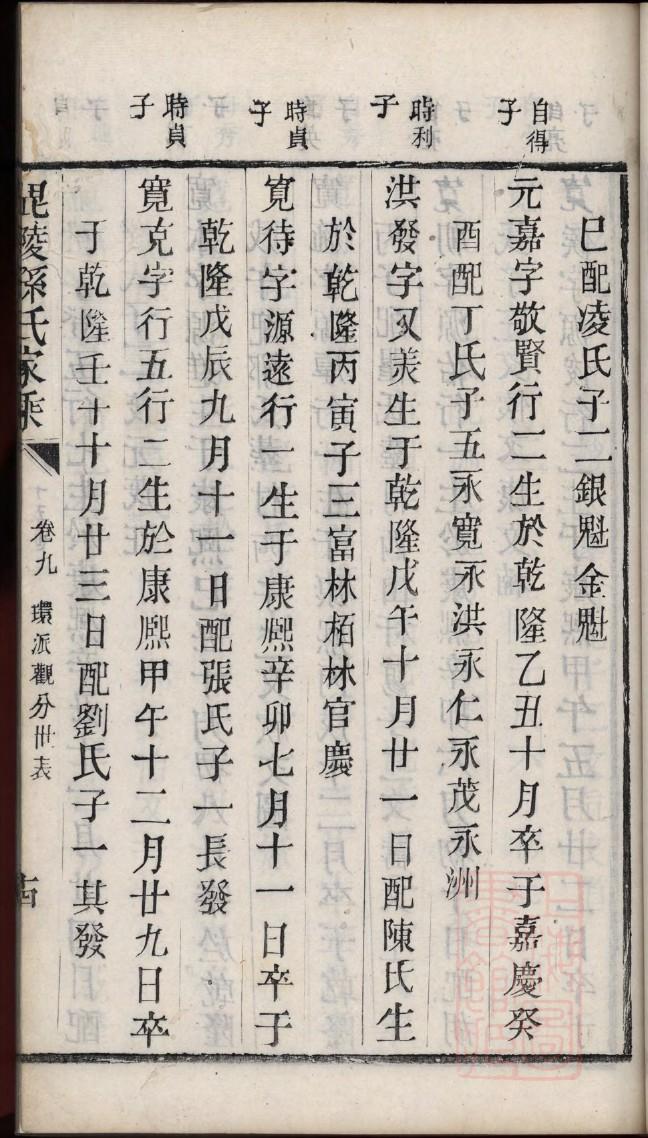 巳配凌氏子二銀魁金魁
自得
子
元嘉字敬賢行二生於乾隆乙丑十月卒于嘉慶癸
酉配丁氏子五永寬永洪永仁永茂永洲
時利
子
洪發字又美生于乾隆戊午十月廿一日配陳氏生
於乾隆丙寅子三富林栢林官慶
時貞
子
寬待字源遠行一生于康熈辛卯七月十一日卒于
乾隆戊辰九月十一日配張氏子一長發
時貞
子
寬克字行五行二生於康熈甲午十二月廿九日卒
于乾隆壬午十月廿三日配劉氏子一其發
毘陵孫氏家乘
卷九
環派觀分世表